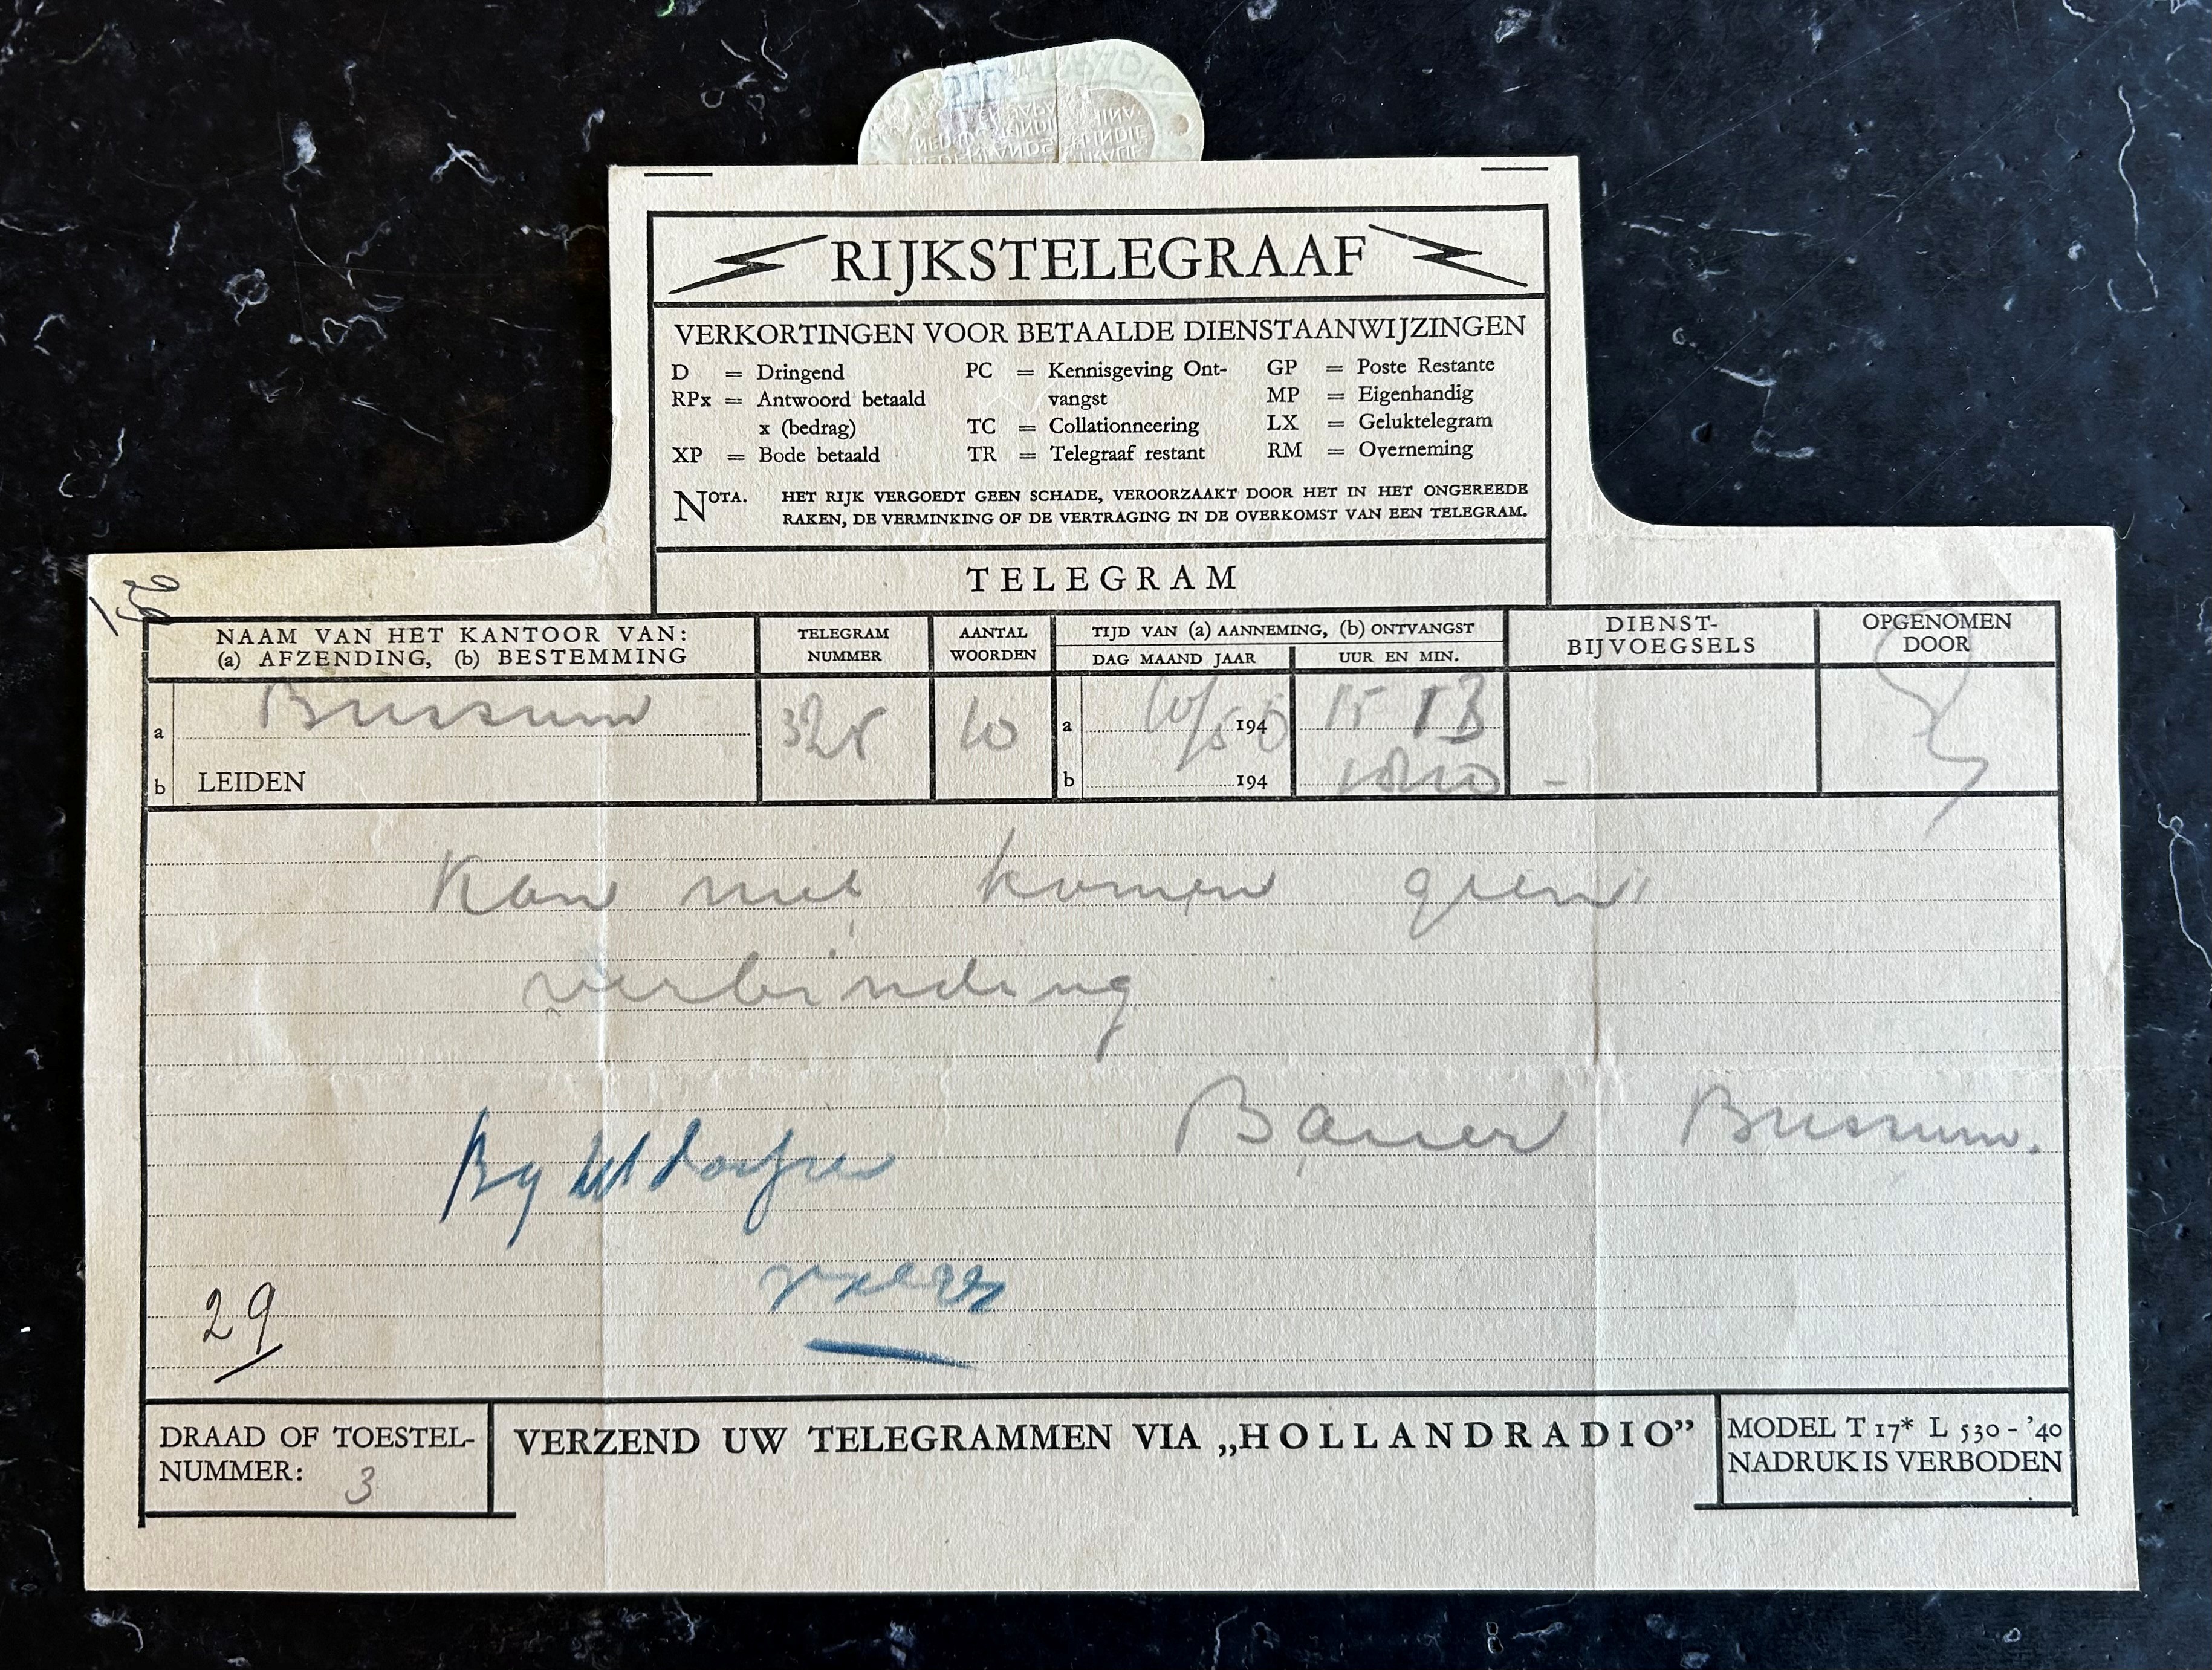 RIJKSTELEGRAAF
VERKORTINGEN VOOR BETAALDE DIENSTAANWIJZINGEN
D = Dringend
RPx = Antwoord betaald
x (bedrag)
XP = Bode betaald
PC = Kennisgeving Ont-
vangst
TC = Collationneering
TR = Telegraaf restant
GP = Poste Restante
MP = Eigenhandig
LX = Geluktelegram
RM = Overneming
NOTA. HET RIJK VERGOEDT GEEN SCHADE, VEROORZAAKT DOOR HET IN HET ONGEREEDE
RAKEN, DE VERMINKING OF DE VERTRAGING IN DE OVERKOMST VAN EEN TELEGRAM.
TELEGRAM
NAAM VAN HET KANTOOR VAN:
(a) AFZENDING, (b) BESTEMMING
TELEGRAM
NUMMER
AANTAL
WOORDEN
TIJD VAN (a) AANNEMING, (b) ONTVANGST
DAG MAAND JAAR
UUR EN MIN.
DIENST-
BIJVOEGSELS
OPGENOMEN
DOOR
a Bussum
10
a 10/5 1940
15 13
b LEIDEN
b 194
Kan niet komen geen
verbinding
Bauer Bussum.
29
DRAAD OF TOESTEL-
NUMMER: 3
VERZEND UW TELEGRAMMEN VIA „HOLLANDRADIO”
MODEL T 17* L 530 - '40
NADRUK IS VERBODEN